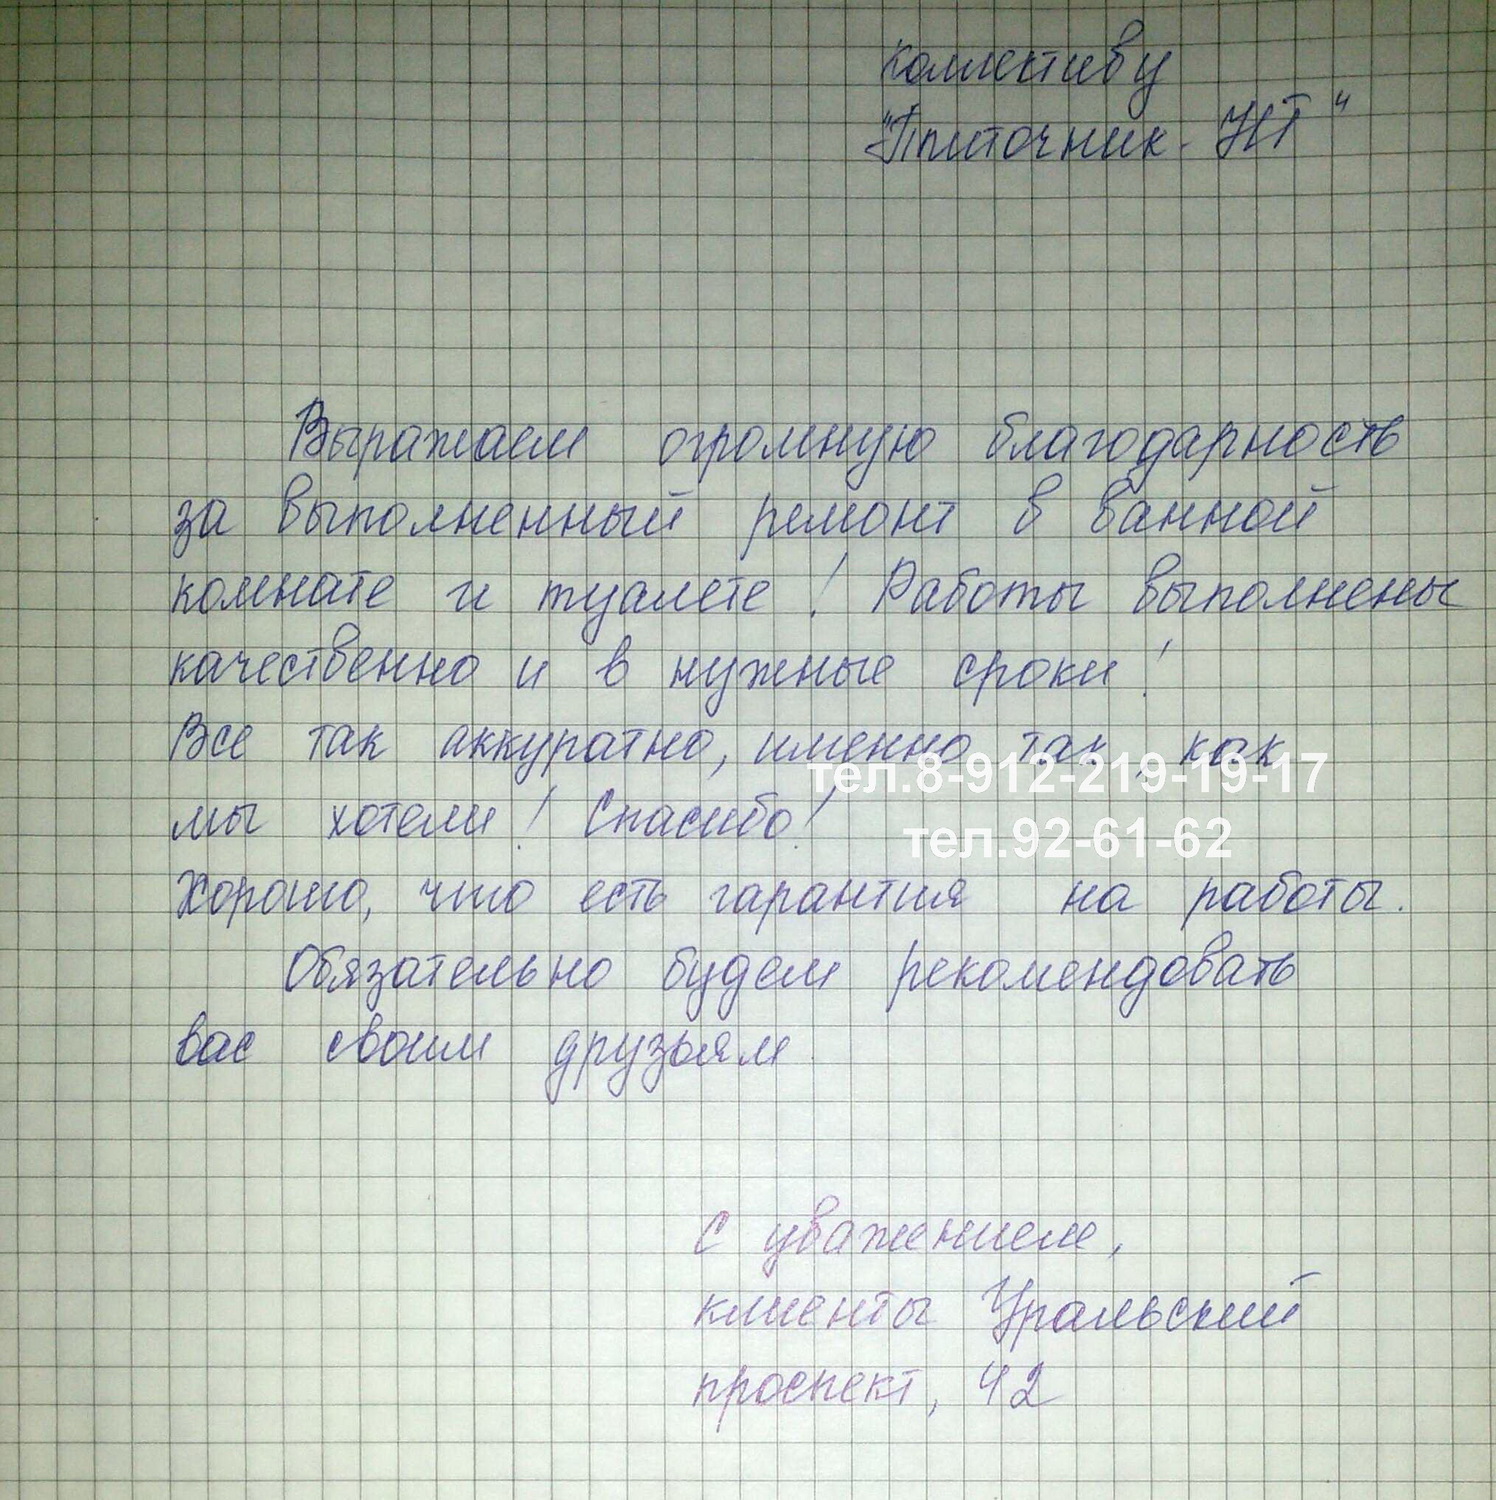 Коллективу
"Плиточник-НТ"
Выражаем огромную благодарность
за выполненный ремонт в ванной
комнате и туалете! Работы выполнены
качественно и в нужные сроки!
Все так аккуратно, именно так, как
тел.8-912-219-19-17
мы хотели! Спасибо!
тел.92-61-62
Хорошо, что есть гарантия на работы.
Обязательно будем рекомендовать
вас своим друзьям.
С уважением,
клиенты Уральский
проспект, 42